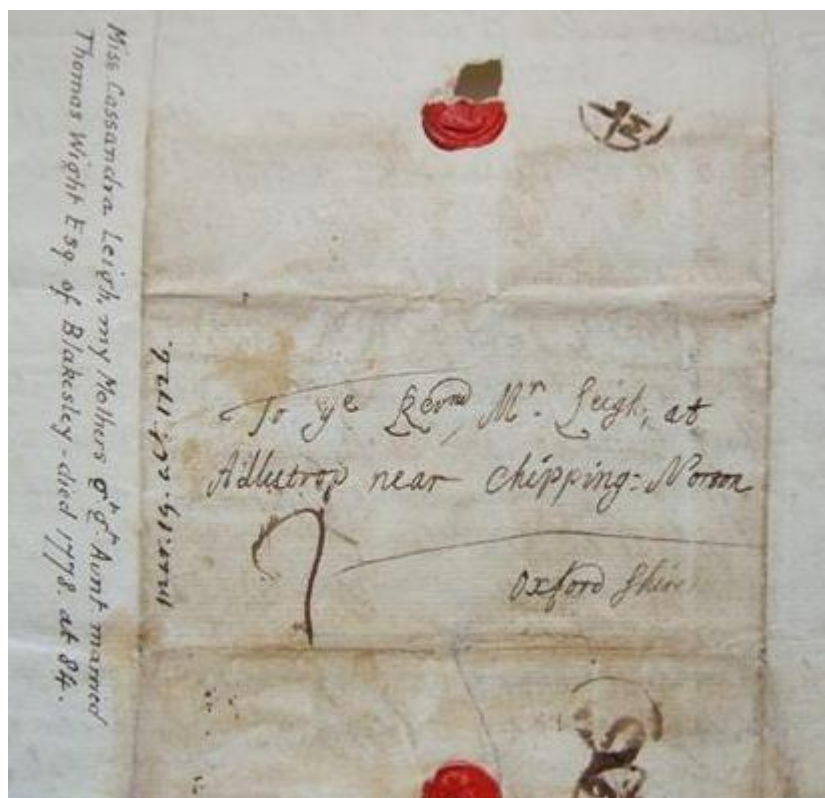 Miss Cassandra Leigh, my Mothers gr gr Aunt married
Thomas Wight Esq of Blakesley - died 1778. at 84.
To ye Revnd Mr. Leigh, at
Adlestrop near Chipping= Norton
Oxford Shire